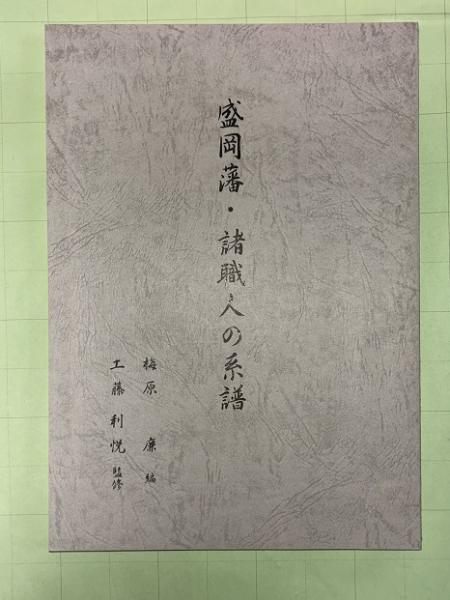 盛岡藩・諸職人の系譜
梅原 廉 編
工藤利悦 監修